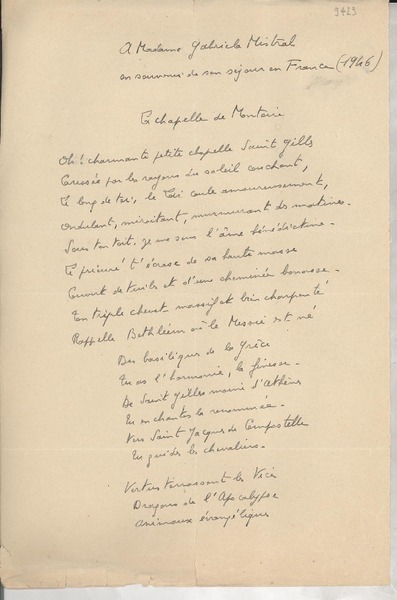 9423
A Madame Gabriela Mistral
en souvenir de son séjour en France (1946)
La chapelle de Montoire
Oh! charmante petite chapelle Saint Gilles
Caressée par les rayons du soleil couchant,
Le long de toi, le Loir coule amoureusement,
Ondulant, miroitant, murmurant des matines.
Sous ton toit, je sens l'âme bénédictine.
Le prieuré t'écrase de sa haute masse
Couvert de tuiles et d'une cheminée bonasse.
Ton triple chevet massif et bien charpenté
Rappelle Bethléem où le Messie est né
Des basiliques de la Grèce
Tu as l'harmonie, la finesse.
De Saint Gilles moine d'Athènes
Tu enchantes la renommée.
Vers Saint Jacques de Compostelle
Tu guides les chevaliers.
Vertus terrassant les Vices
Dragons de l'Apocalypse
Animaux évangéliques